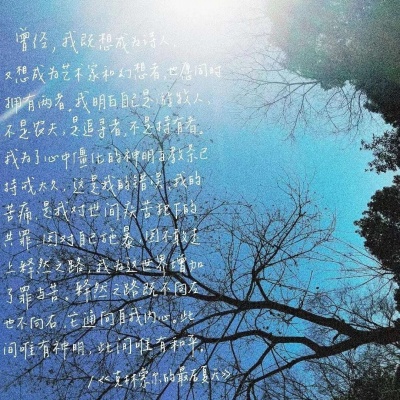 曾经，我既想成为诗人，
又想成为艺术家和幻想者，也愿同时
拥有两者。我明白自己是放牧人，
不是农夫，是追寻者，不是持有者。
我为了心中僵化的神明与教条已
持戒太久，这是我的错误，我的
苦痛，是我对世间疾苦犯下的
共罪。因对自己施暴，因不敢走
上释然之路，我为这世界增加
了罪与苦。释然之路既不向左
也不向右，它通向自我内心。此
间唯有神明，此间唯有和平。
/《克林索尔的最后夏天》